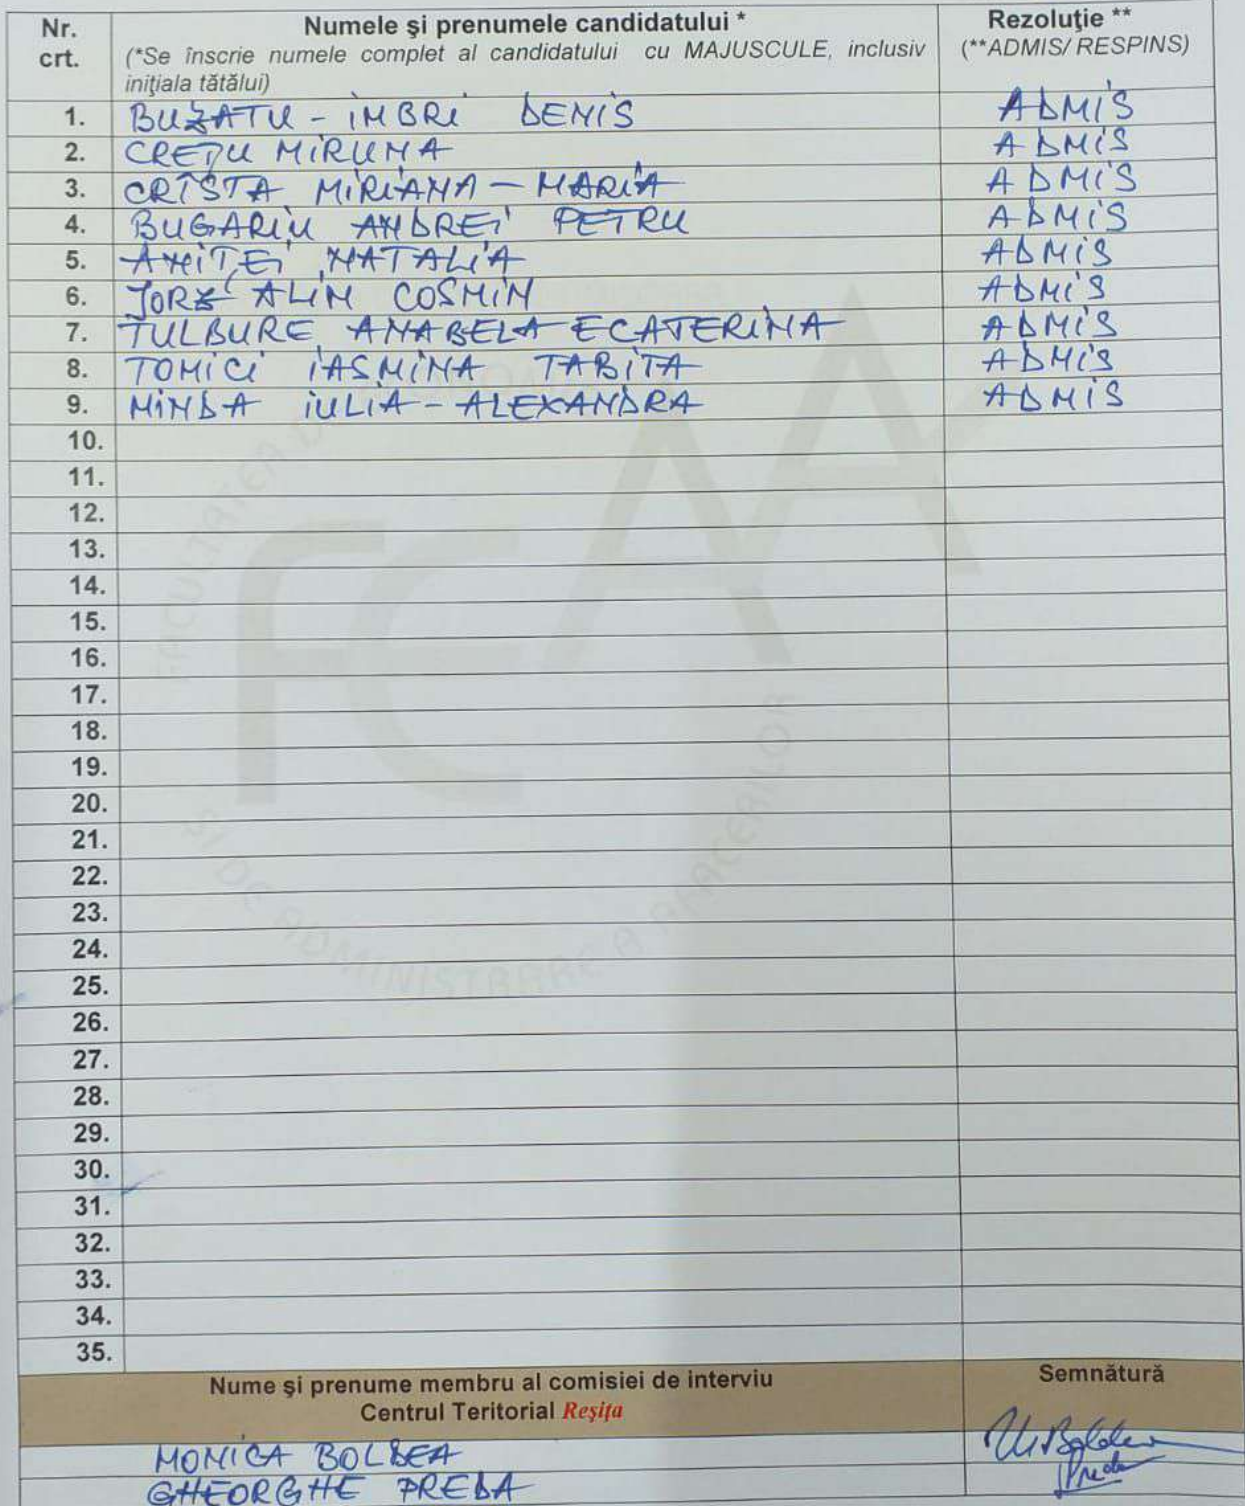 Nr. crt. Numele şi prenumele candidatului * Rezoluţie **
(*Se înscrie numele complet al candidatului cu MAJUSCULE, inclusiv (**ADMIS/ RESPINS)
iniţiala tătălui)
1. BUZATU - IMBRI DENIS ADMIS
2. CREȚU MIRUNA ADMIS
3. CRÎSTA MIRIANA - MARIA ADMIS
4. BUGARIU ANDREI PETRU ADMIS
5. AHIȚEI NATALIA ADMIS
6. JORZ ALIN COSMIN ADMIS
7. TULBURE ANABELA ECATERINA ADMIS
8. TOMICI IASMINA TABITA ADMIS
9. MINDA IULIA - ALEXANDRA ADMIS
10.
11.
12.
13.
14.
15.
16.
17.
18.
19.
20.
21.
22.
23.
24.
25.
26.
27.
28.
29.
30.
31.
32.
33.
34.
35.
Nume şi prenume membru al comisiei de interviu Semnătură
Centrul Teritorial Reşiţa
MONICA BOLDEA
GHEORGHE PREDA
FACULTATEA
ŞI DE ADMINISTRARE A AFACERILOR